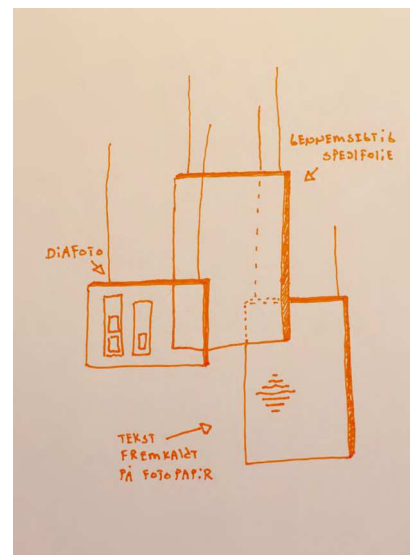 GENNEMSIGTIG
SPEJLFOLIE
DIAFOTO
TEKST
FREMKALDT
PÅ FOTOPAPIR